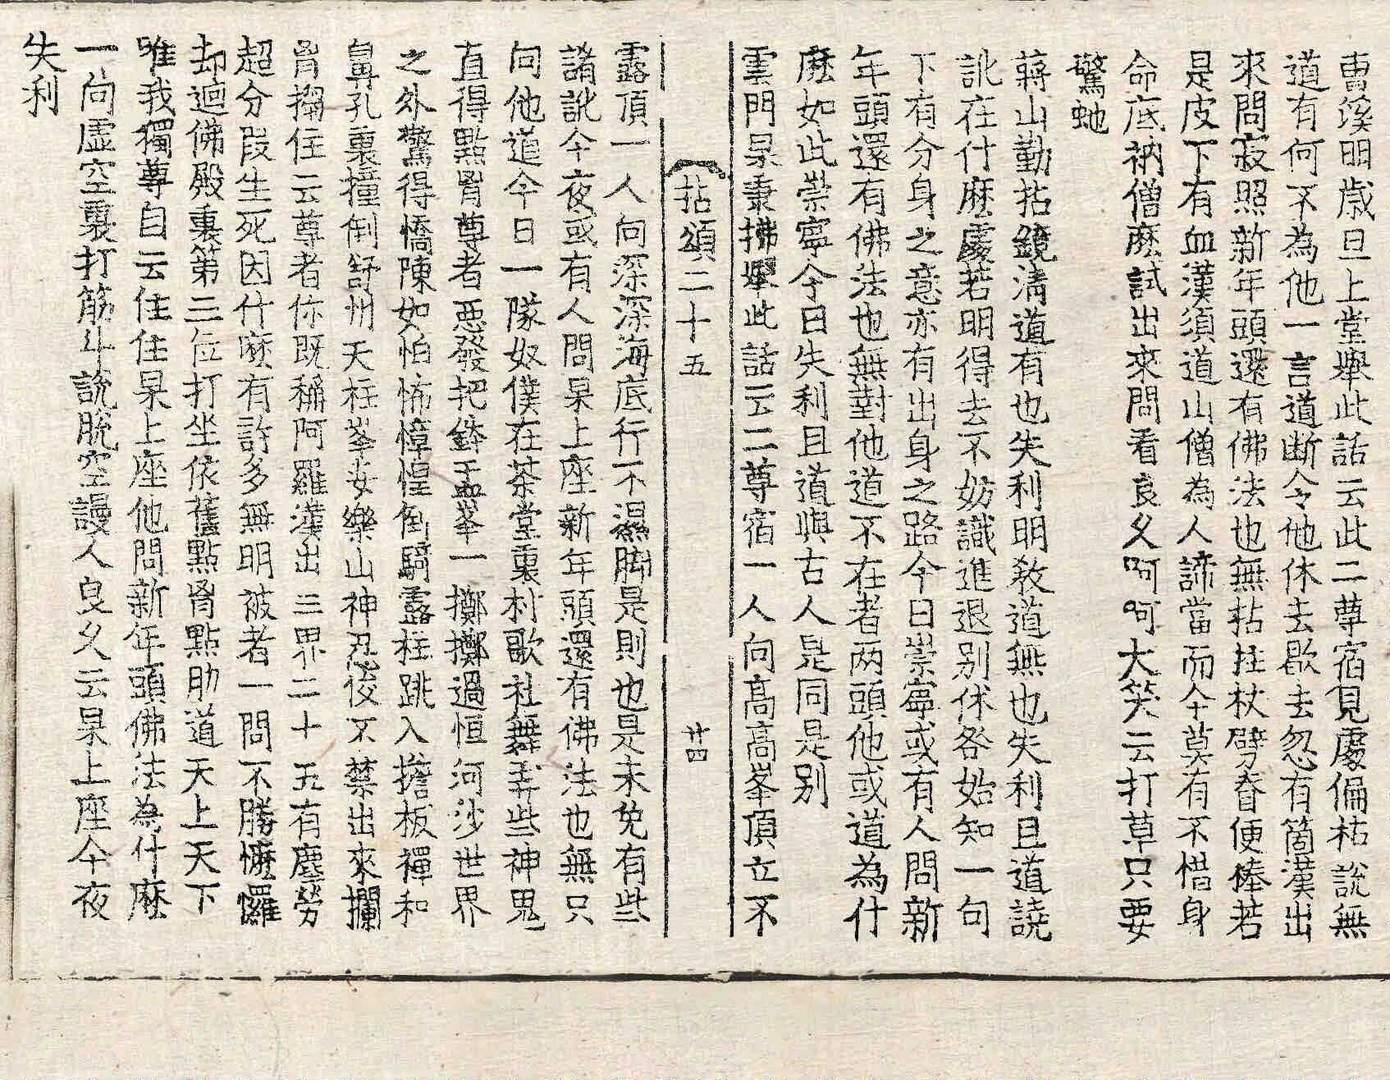 曺溪明歲旦上堂擧此話云此二尊宿見處偏枯說無
道有何不為他一言道断令他休去歇去忽有箇漢出
來問寂照新年頭還有佛法也無拈拄杖劈脊便棒若
是皮下有血漢須道山僧為人諦當而今莫有不惜身
命底衲僧麽試出來問看良久呵呵大笑云打草只要
驚虵
蔣山勤拈鏡淸道有也失利明敎道無也失利且道譊
訛在什麽處若明得去不妨識進退别休咎始知一句
下有分身之意亦有出身之路今日崇寧或有人問新
年頭還有佛法也無對他道不在者两頭他或道為什
麽如此崇寧今日失利且道與古人是同是别
雲門杲秉拂擧此話云二尊宿一人向高高峯頂立不
拈頌二十五 廿四
露頂一人向深深海底行不濕脚是則也是未免有些
誵訛今夜或有人問杲上座新年頭還有佛法也無只
向他道今日一隊奴僕在茶堂裏村歌社舞弄些神鬼
直得點胷尊者惡發把鉢盂峯一擲擲過恒河沙世界
之外驚得憍陳如怕怖慞惶倒騎露柱跳入擔板禪和
鼻孔裏撞倒舒州天柱峯安樂山神忍俊不禁出來攔
胷搊住云尊者你既稱阿羅漢出三界二十五有塵勞
超分段生死因什麽有許多無明被者一問不勝懡㦬
却迴佛殿裏第三位打坐依舊點胷點肋道天上天下
唯我獨尊自云住住杲上座他問新年頭佛法為什麽
一向虛空裏打筋斗說脫空謾人良久云杲上座今夜
失利